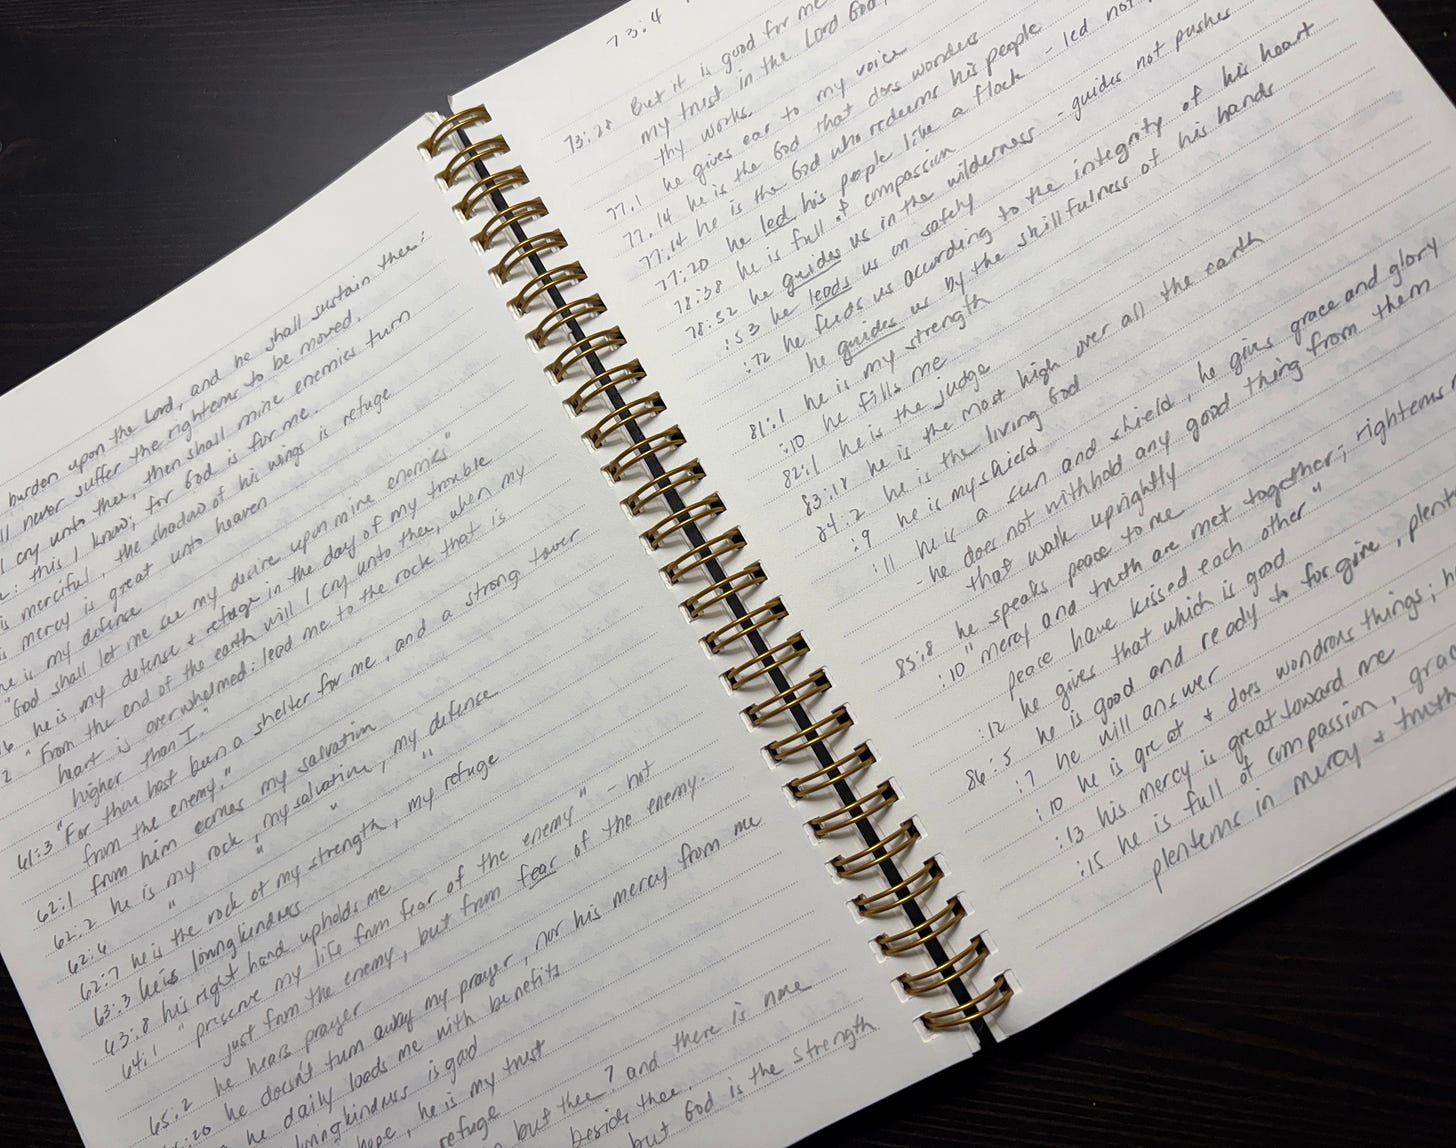 burden upon the Lord, and he shall sustain thee:
never suffer the righteous to be moved.
I cry unto thee, then shall mine enemies turn
this I know; for God is for me.
merciful, the shadow of his wings is refuge
mercy is great unto heaven
he is my defense
"God shall let me see my desire upon mine enemies"
he is my defense + refuge in the day of my trouble
"From the end of the earth will I cry unto thee, when my
heart is overwhelmed: lead me to the rock that is
higher than I."
61:3 "For thou hast been a shelter for me, and a strong tower
from the enemy."
62:1 from him comes my salvation
62:2 he is my rock, my salvation, my defense
62:6 " " " "
62:7 he is the rock of my strength, my refuge
63:3 he is lovingkindness
63:8 his right hand upholds me
64:1 "preserve my life from fear of the enemy" - not
just from the enemy, but from fear of the enemy.
65:2 he hears prayer
:20 he doesn't turn away my prayer, nor his mercy from me
he daily loads me with benefits
lovingkindness is good
hope, he is my trust
refuge
but thee? and there is none
beside thee.
but God is the strength
73:4
73:28 But it is good for me
my trust in the Lord God,
thy works.
77:1 he gives ear to my voice
77:14 he is the God that does wonders
77:14 he is the God who redeems his people
77:20 he led his people like a flock - led not
78:38 he is full of compassion
78:52 he guides us in the wilderness - guides not pushes
:53 he leads us on safely
:72 he feeds us according to the integrity of his heart
he guides us by the skillfulness of his hands
81:1 he is my strength
:10 he fills me
82:1 he is the judge
83:18 he is the most high over all the earth
84:2 he is the living God
:9 he is my shield
:11 he is a sun and shield, he gives grace and glory
- he does not withhold any good thing from them
that walk uprightly
85:8 he speaks peace to me
:10 "mercy and truth are met together; righteous
peace have kissed each other"
:12 he gives that which is good
86:5 he is good and ready to forgive, plent
:7 he will answer
:10 he is great + does wondrous things;
:13 his mercy is great toward me
:15 he is full of compassion, grac
plenteous in mercy + truth